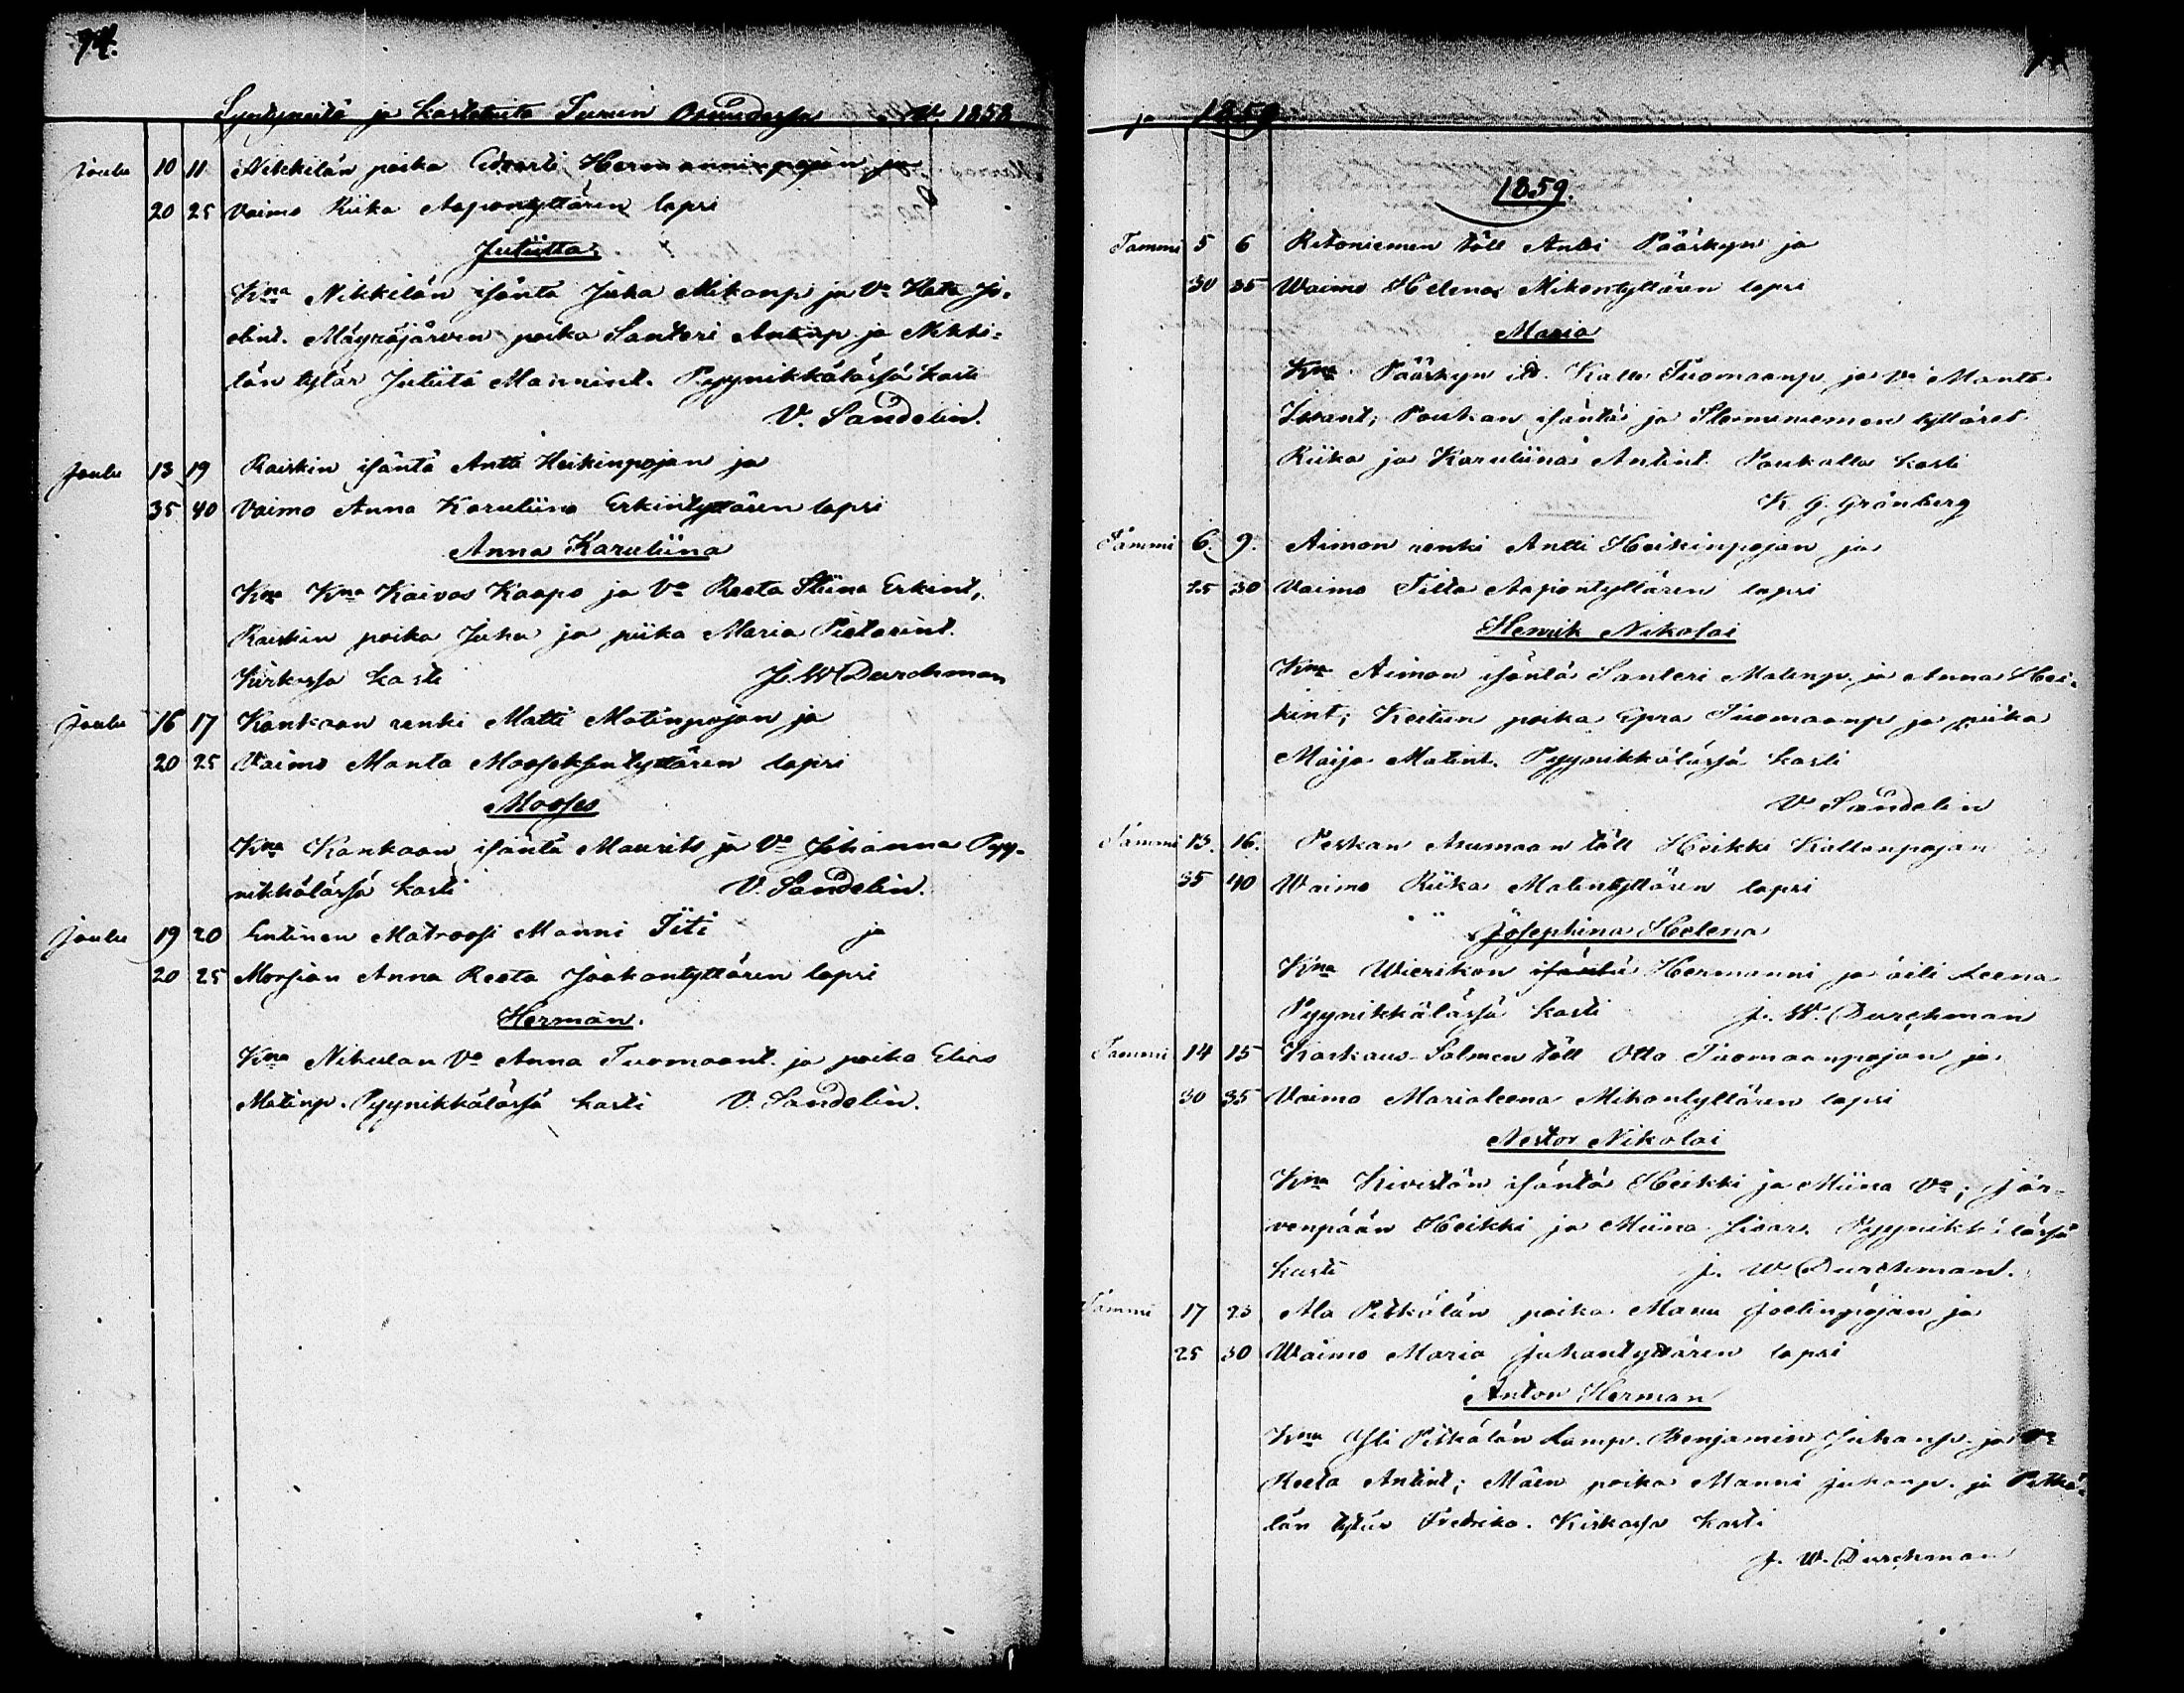 74.
Syntyneitä ja kastetuita Turun Osuudessa W. 1858
Joulu 10 11 Nikkilän poika Edvarti Hermanninpojan ja
20 25 Vaimo Riika Aapontyttären lapsi
Jutiitta
Kna Nikkilän isäntä Juha Mikanp ja Vo Kata Jo-
elint. Mäyräjärven poika Santeri Antinp ja Nikki-
län tytär Jutiita Mannint. Pyynikkälässä kasti
V. Sandelin.
Joulu 13 19 Raiskin isäntä Antti Heikinpojan ja
35 40 Vaimo Anna Karuliina Erkintyttären lapsi
Anna Karuliina
Kna Kna Kaivos Kaapo ja Vo Reeta Stiina Erkint,
Raiskin poika Juha ja piika Maria Pietarint.
Kirkossa kasti J. W Durchman
Joulu 16 17 Kankaan renki Matti Matinpojan ja
20 25 Vaimo Manta Mooseksentyttären lapsi
Mooses
Kna Kankaan isäntä Maurits ja Vo Johanna Pyy-
nikkälässä kasti V. Sandelin.
Joulu 19 20 Entinen Matroosi Manni Titi ja
20 25 Morsian Anna Reeta Jaakontyttären lapsi
Herman.
Kna Nikulan Vo Anna Tuomaant. ja poika Elias
Matinp. Pyynikkälässä kasti V. Sandelin.
ja 1859
1859.
Tammi 5 6 Retoniemen töll Antti Pääskyn ja
30 35 Waimo Helena Mikontyttären lapsi
Maria
Kna Pääskyn is. Kalle Tuomaanp ja Vo Manta
Iisant; Poukan isäntä ja tyttäret
Riika ja Karuliina Antint. Poukalla kasti
K. G. Grönberg
Tammi 6. 9. Aimon renki Antti Heikinpojan ja
25 30 Vaimo Tilta Aapontyttären lapsi
Henrik Nikolai
Kna Aimon isäntä Santeri Matinp. ja Anna Hei-
kint; Keitun poika Epra Tuomaanp ja piika
Maija Matint. Pyynikkälässä kasti
V. Sandelin
Tammi 13. 16. Peskan Asumaan töll Heikki Kallenpojan ja
35 40 Waimo Riika Matintyttären lapsi
Josephina Helena
Kna Wierikon isäntä Hermanni ja äiti Leena
Pyynikkälässä kasti J. W. Durchman
Tammi 14 15 Karkaus-Salmen töll Otto Tuomaanpojan ja
30 35 Vaimo Marialeena Mikontyttären lapsi
Nestor Nikolai
Kna Kivistön isäntä Heikki ja Miina Vo; Jär-
venpään Heikki ja Miina sisar. Pyynikkälässä
kasti J. W. Durchman.
Tammi 17 23 Ala Pitkälän poika Manu Joelinpojan ja
25 30 Waimo Maria Juhantyttären lapsi
Anton Herman
Kna Yli Pitkälän Lamp. Benjamin Juhanp. ja Vo
Reeta Antint; Mäen poika Manni Juhanp. ja Pitkä-
län tytär Fredrika. Kirkossa kasti
J. W. Durchman